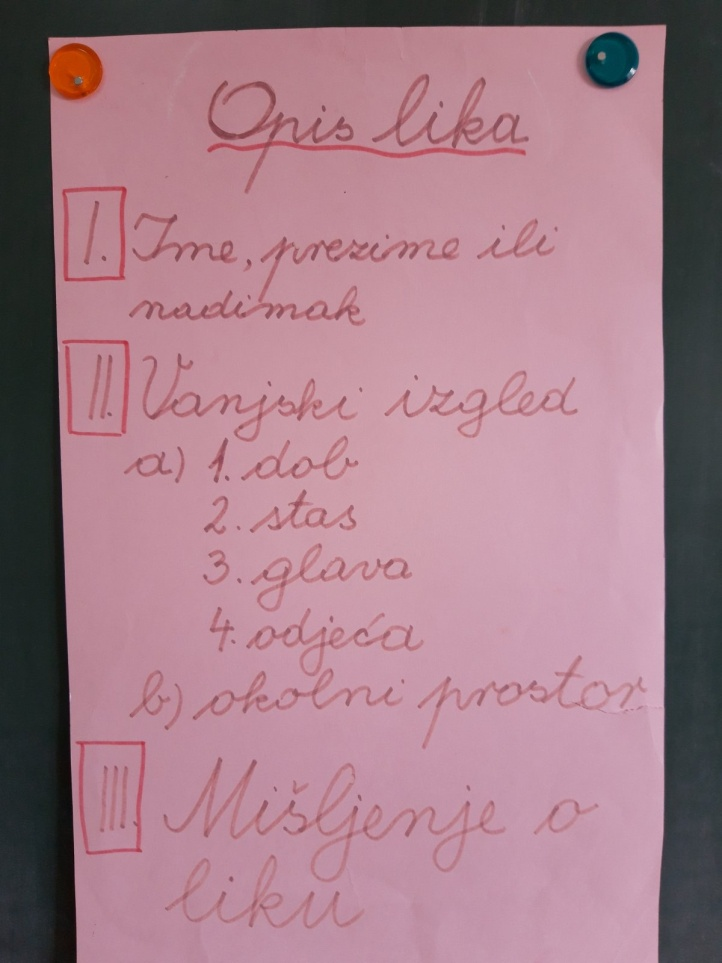 Opis lika
I. Ime, prezime ili
nadimak
II. Vanjski izgled
a) 1. dob
2. stas
3. glava
4. odjeća
b) okolni prostor
III. Mišljenje o
liku